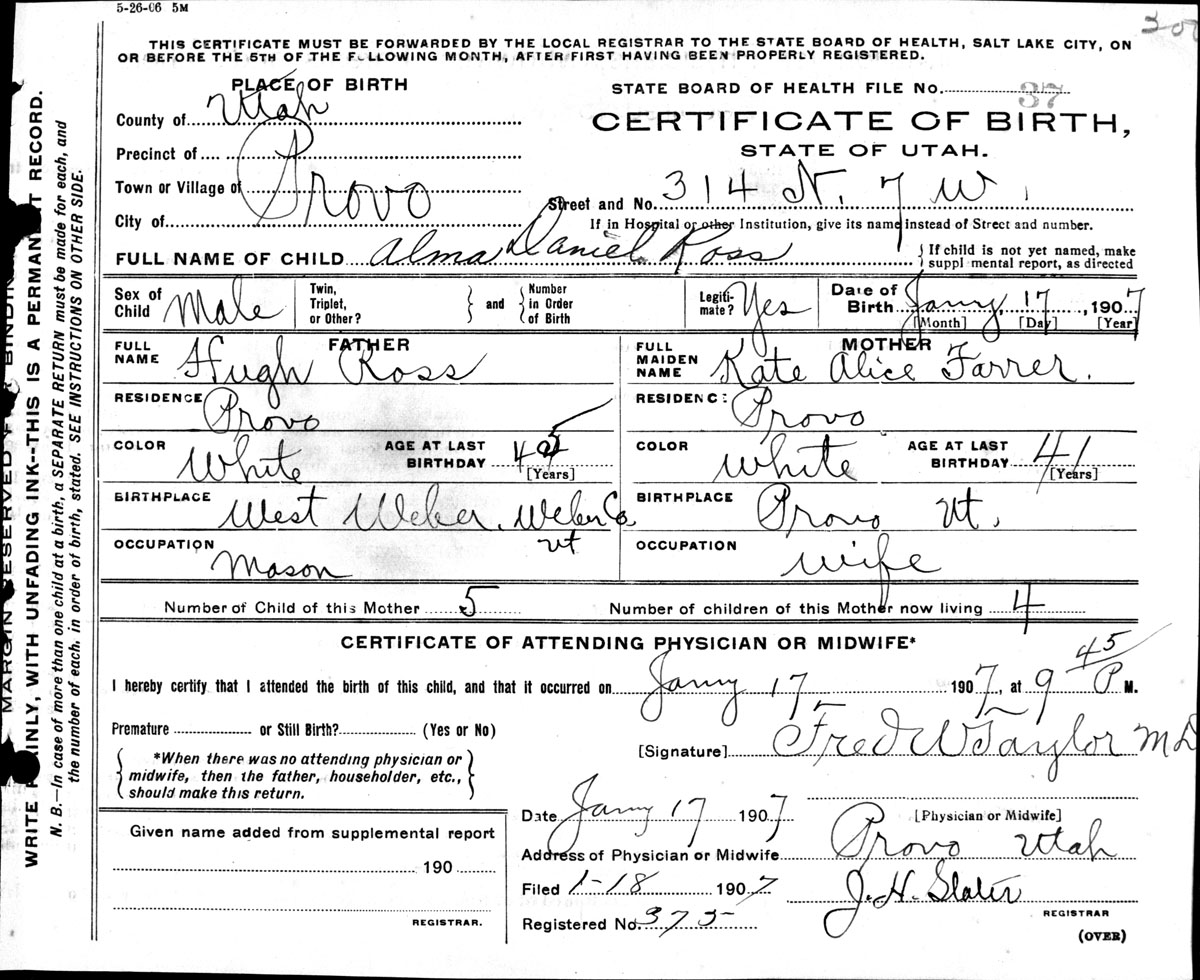 5-26-06 5M
THIS CERTIFICATE MUST BE FORWARDED BY THE LOCAL REGISTRAR TO THE STATE BOARD OF HEALTH, SALT LAKE CITY, ON
OR BEFORE THE 5TH OF THE FOLLOWING MONTH, AFTER FIRST HAVING BEEN PROPERLY REGISTERED.
WRITE PLAINLY, WITH UNFADING INK--THIS IS A PERMANENT RECORD.
N. B.—In case of more than one child at a birth, a SEPARATE RETURN must be made for each, and
the number of each, in order of birth, stated. SEE INSTRUCTIONS ON OTHER SIDE.
PLACE OF BIRTH
County of Utah
Precinct of
Town or Village of Provo
City of
STATE BOARD OF HEALTH FILE No. 37
CERTIFICATE OF BIRTH,
STATE OF UTAH.
Street and No. 314 N. 7 W.
If in Hospital or other Institution, give its name instead of Street and number.
FULL NAME OF CHILD Alma Daniel Ross
If child is not yet named, make
supplmental report, as directed
Sex of Child Male
Twin, Triplet, or Other?
and
Number in Order of Birth
Legiti-mate? Yes
Date of Birth Jany 17, 1907
[Month] [Day] [Year]
FATHER
FULL NAME Hugh Ross
RESIDENCE Provo
COLOR White AGE AT LAST BIRTHDAY 45
[Years]
BIRTHPLACE West Weber, Weber Co
Ut
OCCUPATION Mason
MOTHER
FULL MAIDEN NAME Kate Alice Farrer.
RESIDENCE Provo
COLOR White AGE AT LAST BIRTHDAY 41
[Years]
BIRTHPLACE Provo Ut.
OCCUPATION Wife
Number of Child of this Mother 5 Number of children of this Mother now living 4
CERTIFICATE OF ATTENDING PHYSICIAN OR MIDWIFE*
I hereby certify that I attended the birth of this child, and that it occurred on Jany 17 1907, at 9 45 P M.
Premature or Still Birth? (Yes or No)
*When there was no attending physician or
midwife, then the father, householder, etc.,
should make this return.
[Signature] Fred W Taylor MD
[Physician or Midwife]
Given name added from supplemental report
190
REGISTRAR.
Date Jany 17 1907
Address of Physician or Midwife Provo Utah
Filed 1-18 1907 J. H. Slater
REGISTRAR
Registered No. 375
(OVER)